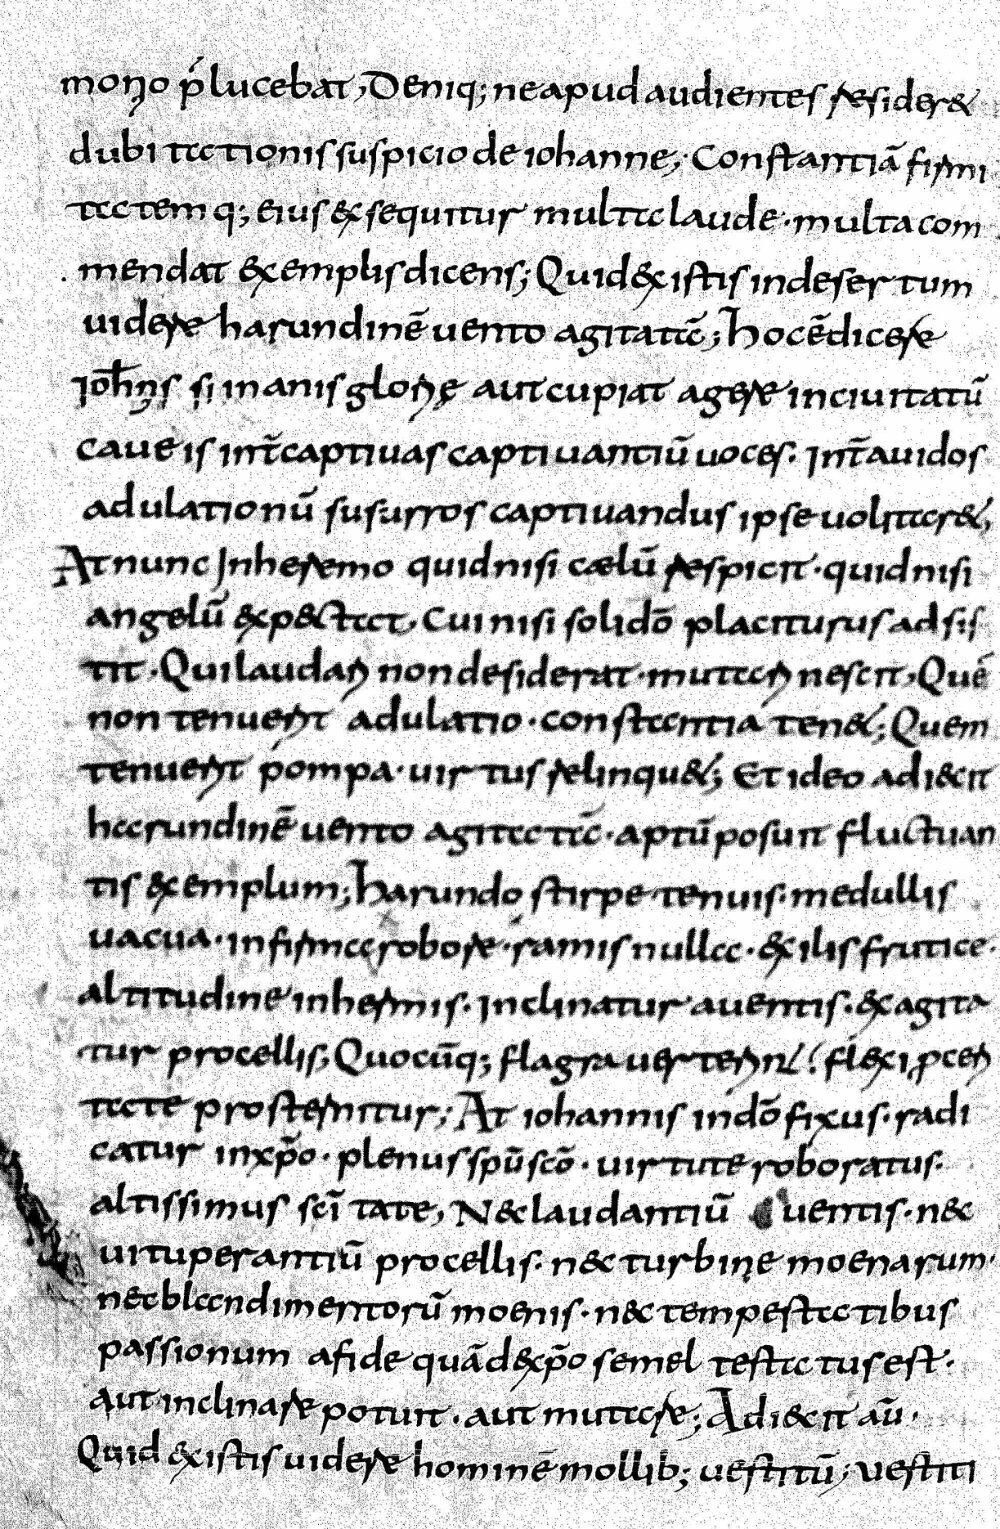 monio p̄lucebat, Deniq; ne apud audientes resider&
dubitationis suspicio de iohanne, Constantiā firmi
tatemq; eius &sequitur multa laude · multa com
mendat exemplis dicens; Quid existis in desertum
uidere harundinē uento agitatā; hoc ē dicere
ioh̄nis si inanis glorię aut cupiat agere in ciuitatū
caueis int̄ captiuas captiuantiū uoces. Int̄ auidos
adulationū susurros captiuandus ipse uolitar&,
At nunc Inheremo quid nisi cælū respicit · quid nisi
angelū exp&ctat, Cui nisi solidō placiturus adsis
tit · Qui laudari non desiderat · mutari nescit, Quē
non tenuerit adulatio · constantia ten&; Quem
tenuerit pompa · uirtus relinqu&; Et ideo adiecit
harundinē uento agitatā · aptū posuit fluctuan
tis exemplum; harundo stirpe tenuis · medullis
uacua · infirma robore · ramis nulla · exilis frutice ·
altitudine inhermis · inclinatur a uentis · exagita
tur procellis; Quocūq; flagra uerterint flexi ꝓceri
tate prosternitur; At iohannis in dō fixus · radi
catur in xp̄o · plenus spū scō · uirtute roboratus ·
altissimus scītate, Nec laudantiū uentis · nec
uituperantiū procellis · nec turbine moenarum ·
nec blandimentorū moenis · nec tempestatibus
passionum a fide quā d& xp̄o semel testatus est ·
aut inclinare potuit · aut mutare; Adiecit aū ·
Quid existis uidere hominē mollib; uestitū; uestiti